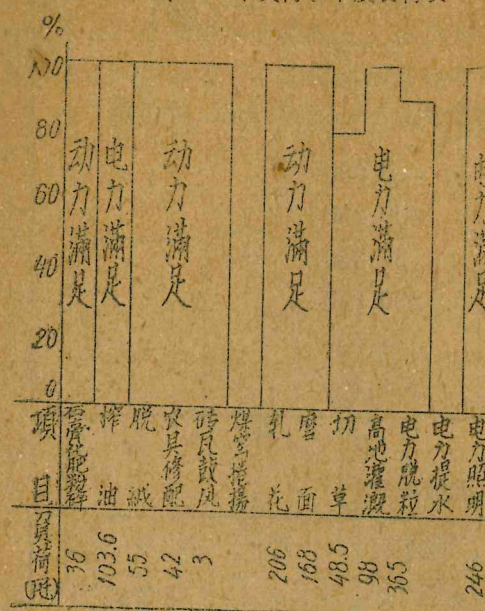 %
100
80
60
40
20
0
动力滿足
电力滿足
动力滿足
动力滿足
电力滿足
力滿足
項目
石膏化肥粉碎
榨油
脱絨
农具修配
砖瓦鼓风
煤窑捲揚
轧花
磨面
切草
高地灌溉
电力脱粒
电力提水
电力照明
負荷(瓩)
36
103.6
55
42
3
206
168
48.5
98
365
246